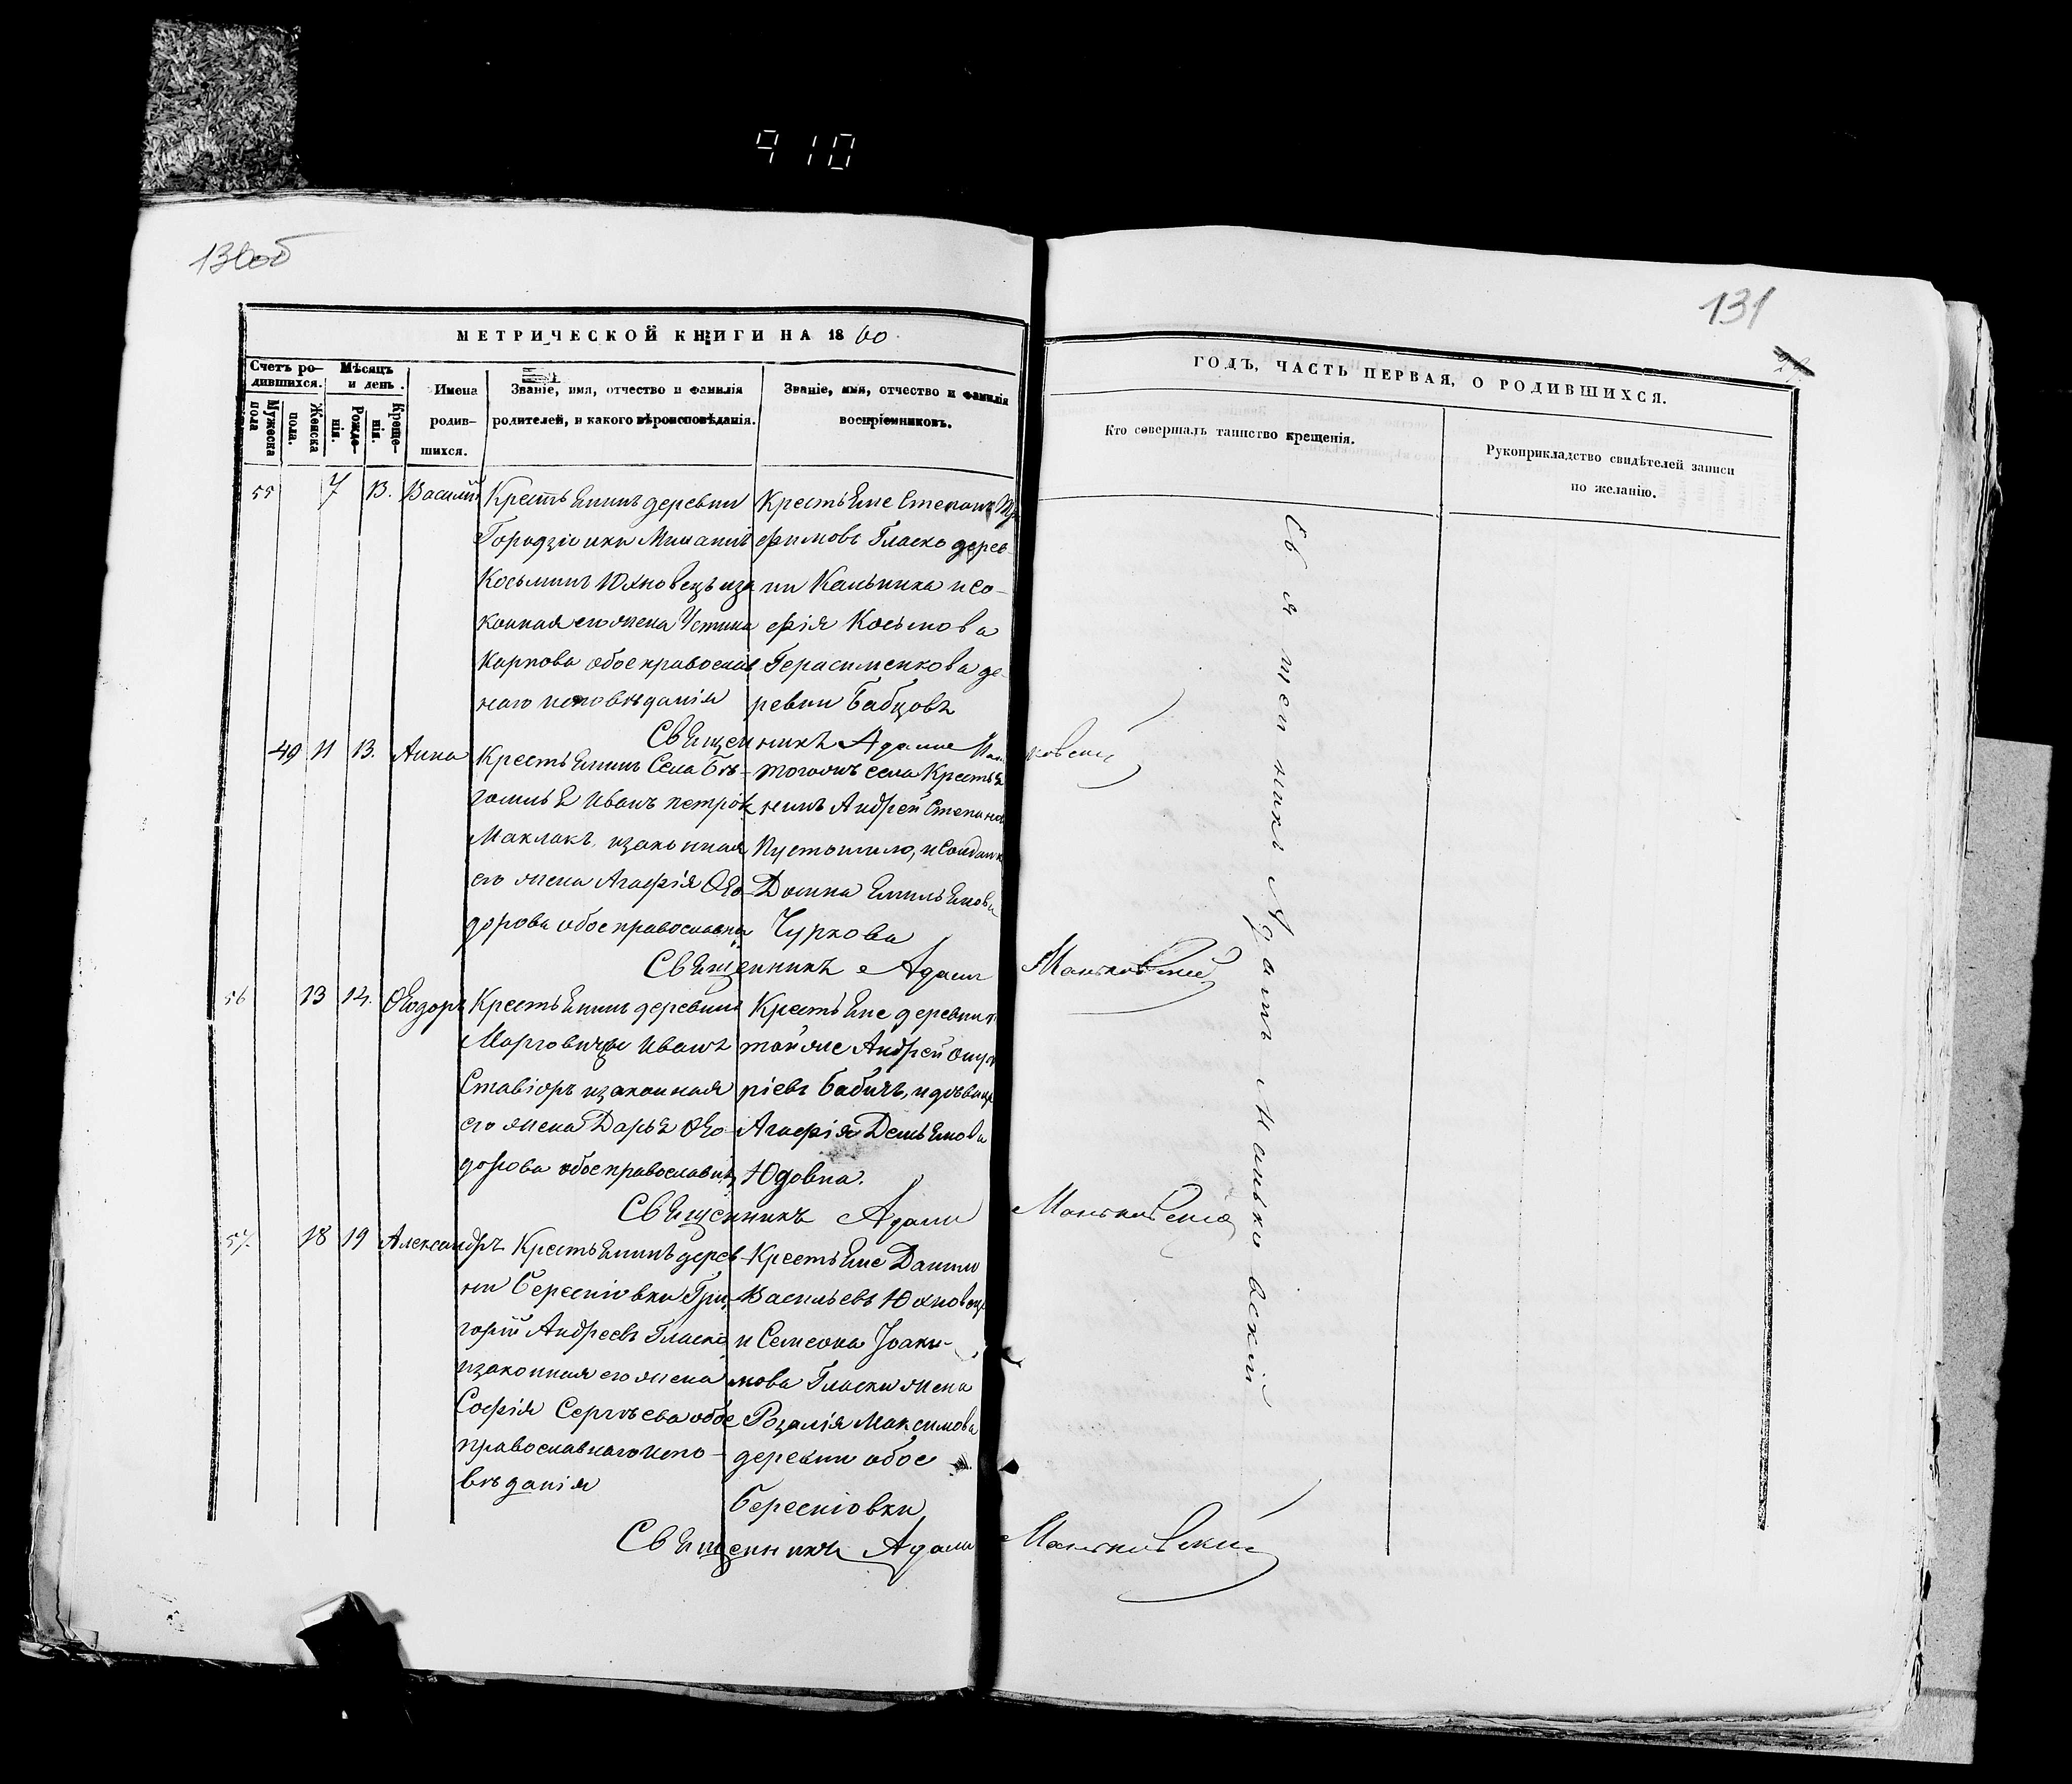 910
130об
131
МЕТРИЧЕСКОЙ КНИГИ НА 1860.
ГОДЪ, ЧАСТЬ ПЕРВАЯ, О РОДИВШИХСЯ.
Счетъ ро-
дившихся.
Мужеска пола
Женска пола.
Мѣсяцъ
и день.
Рожде-
нія.
Креще-
нія.
Имена
родив-
шихся.
Званіе, имя, отчество и фамилія
родителей, и какого вѣроисповѣданія.
Званіе, имя, отчество и фамилія
воспріемниковъ.
Кто совершалъ таинство крещенія.
Рукоприкладство свидѣтелей записи
по желанію.
55
7
13.
Василій
Крестьянинъ деревни
Косьминъ Юхновецъ иза
конная его жена Устина
Карпова обое православ
наго исповѣданія
Крестьяне Степанъ
фимовъ Гласко дерев-
ни Кальника и Со-
фія Косьмова
Герасименкова де-
ревни Бабцовъ
Священникъ Адамъ Маньковскій
49
11
13.
Анна
Крестьянинъ Села Бѣ-
гомля Иванъ Петровъ
Маклакъ, изаконная
его жена Агафія Ѳео-
дорова обое православны
тогожъ села Крестья
нинъ Андрей Степановъ
Пустошило, и Солдатка
Домна Емильянова
Чуркова
Священникъ Адамъ Маньковскій
56
13
14.
Ѳеодоръ
Крестьянинъ деревни
Марговицы Иванъ
Ставіоръ изаконная
его жена Дарья Ѳео-
дорова обое православны
Крестьяне деревни
той же Андрей
ріевъ Бабичъ, и дѣвица
Агафія Демьянова
Юдовна.
Священникъ Адамъ Маньковскій
57.
18
19
Александръ
Крестьянинъ дерев-
ни Бересніовки Гри-
горій Андреевъ Гласко
изаконная его жена
Софія Сергѣева обое
православнаго испо-
вѣданія
Крестьяне Данило
Васильевъ Юхновецъ
и Семеона Іоаки-
мова Гласки жена
Розалія Максимова
деревни обое
Бересніовки
Священникъ Адамъ Маньковскій
Священникъ Адамъ Маньковскій